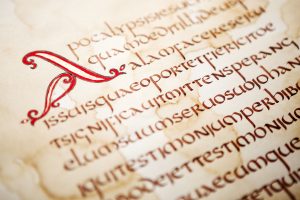 Apocalypsisiesu
quamdeditillideus
alamfacereserui
issuisquaeoportetfiericitoe
tsignificauitmittensperang
elumsuumseruosuoiohan
iquitestimoniumperhib
rbodeiettestimoniu
quaecumque